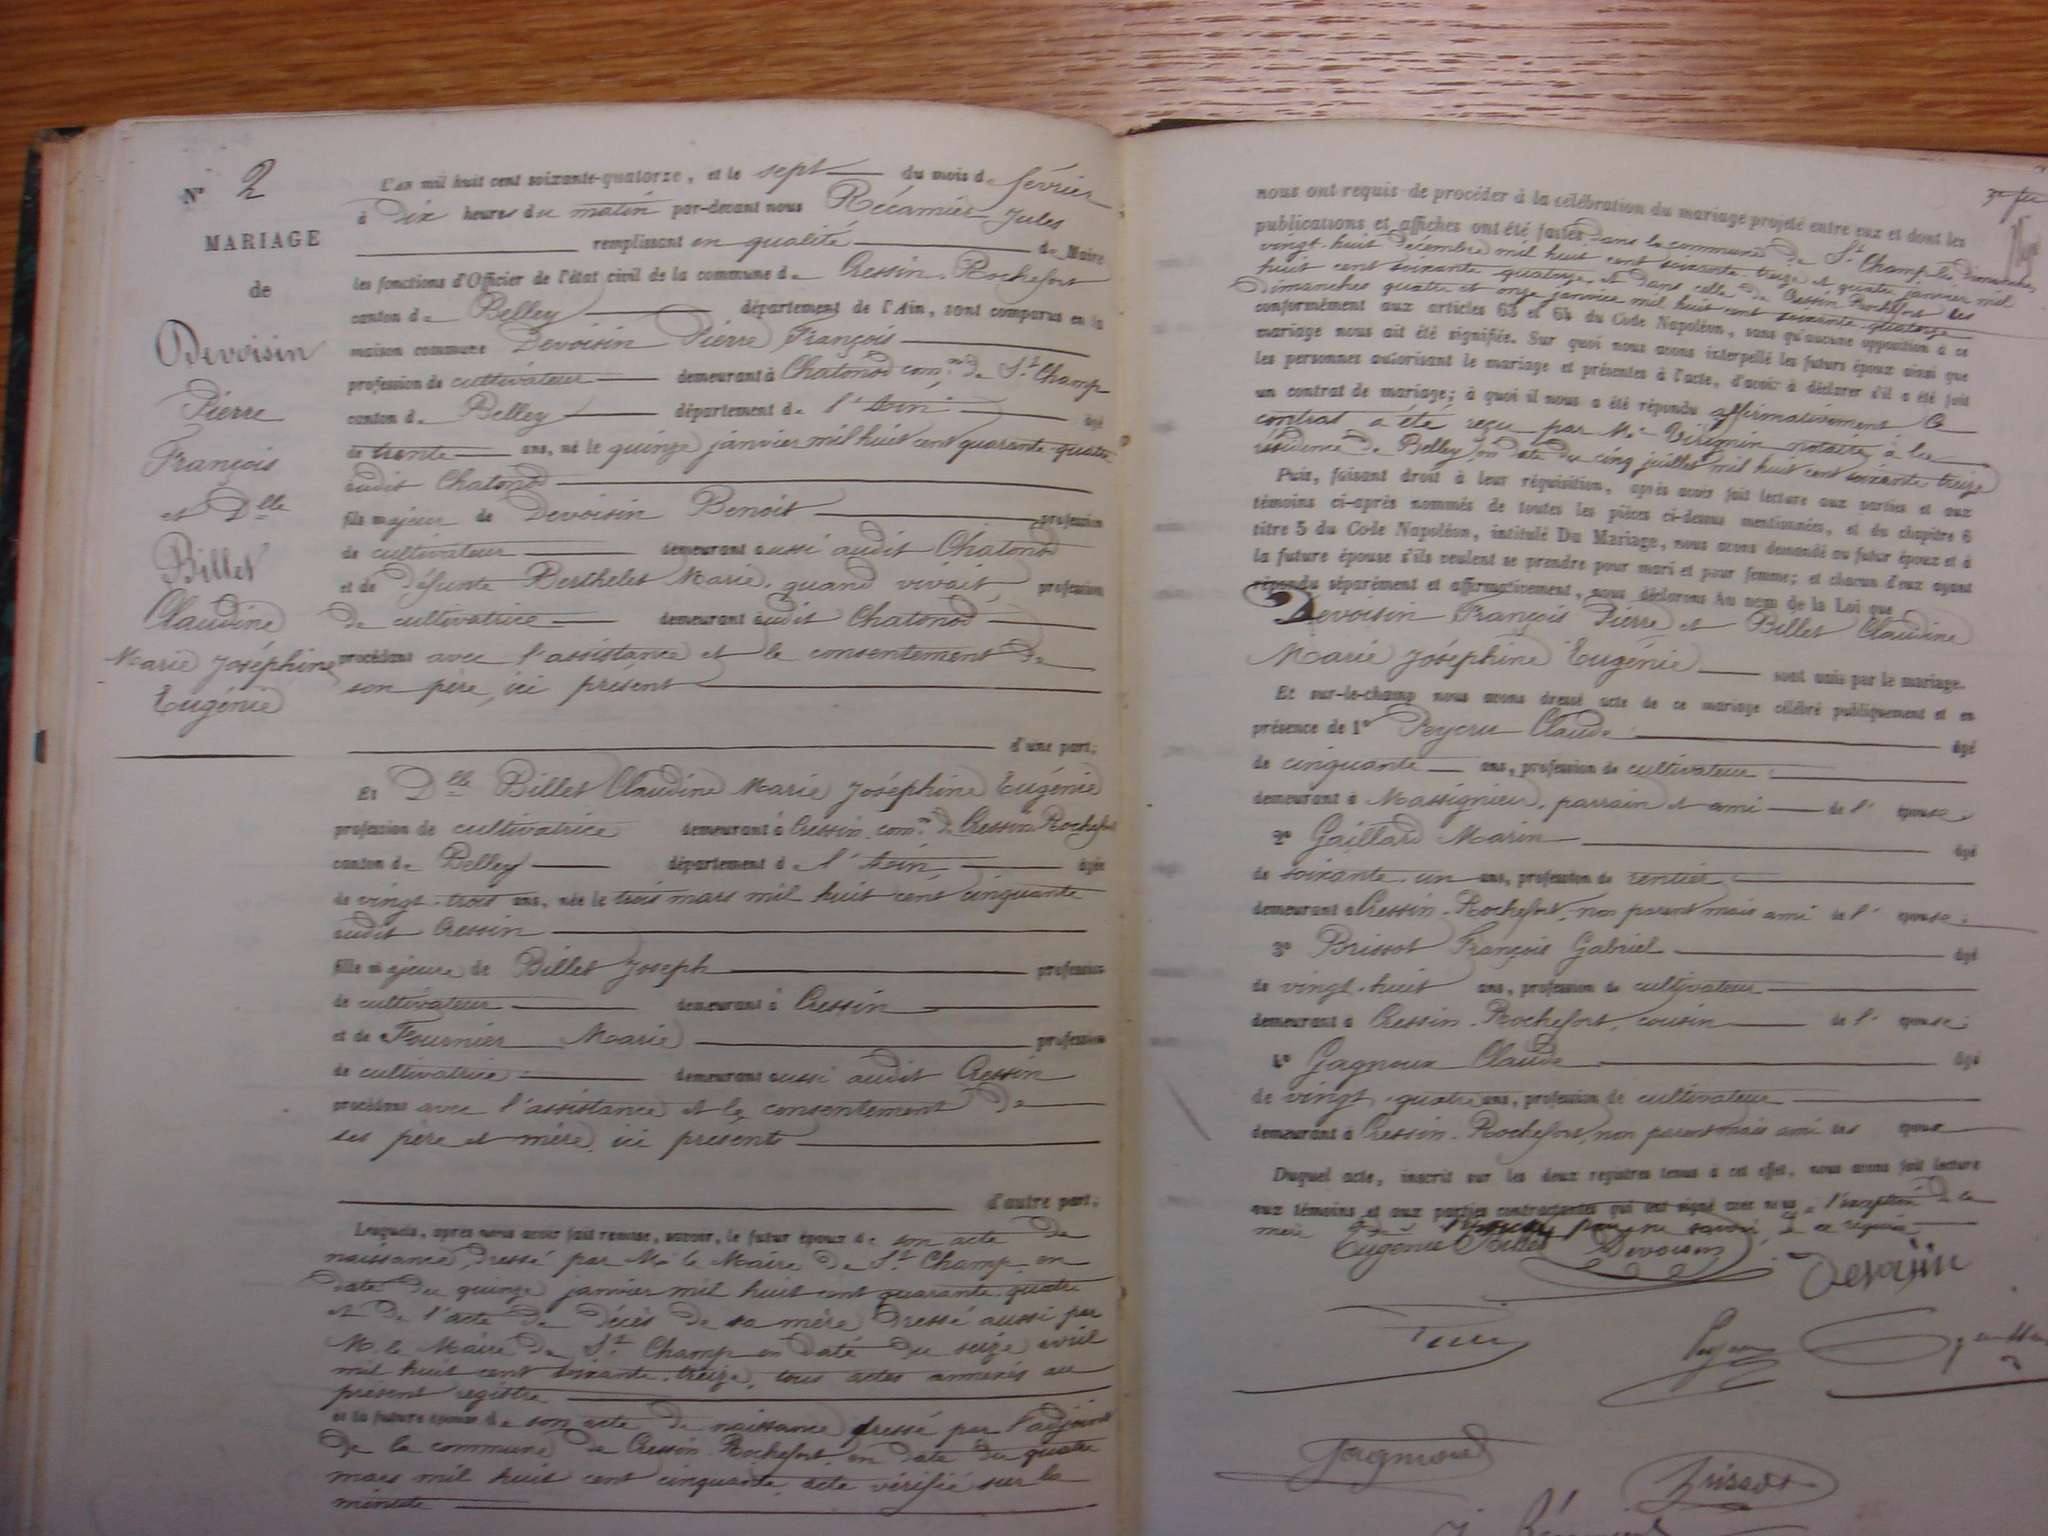 N° 2
MARIAGE
de
Devoisin
Pierre
François
et Dlle
Billet
Claudine
Marie Joséphine
Eugénie
L'an mil huit cent soixante-quatorze, et le sept du mois de février
à dix heures du matin par-devant nous Récamier Jules
remplissant en qualité de Maire
les fonctions d'Officier de l'état civil de la commune de Cressin-Rochefort
canton de Belley département de l'Ain, sont comparus en la
maison commune Devoisin Pierre François
profession de cultivateur demeurant à Chatonod com.ne de St Champ
canton de Belley département de l'Ain âgé
de trente ans, né le quinze janvier mil huit cent quarante-quatre
audit Chatonod
fils majeur de Devoisin Benoit profession
de cultivateur demeurant aussi audit Chatonod
et de défunte Berthelet Marie, quand vivait, profession
de cultivatrice demeurant audit Chatonod
procédant avec l'assistance et le consentement de
son père, ici présent
d'une part;
Et Dlle Billet Claudine Marie Joséphine Eugénie
profession de cultivatrice demeurant à Cressin com.ne de Cressin Rochefort
canton de Belley département de l'Ain, âgée
de vingt-trois ans, née le trois mars mil huit cent cinquante
audit Cressin
fille majeure de Billet Joseph profession
de cultivateur demeurant à Cressin
et de Fournier Marie profession
de cultivatrice demeurant aussi audit Cressin
procédant avec l'assistance et le consentement de
ses père et mère, ici présents
d'autre part;
Lesquels, après nous avoir fait remise, savoir, le futur époux de son acte de
naissance dressé par M. le Maire de St Champ en
date du quinze janvier mil huit cent quarante-quatre
et de l'acte de décès de sa mère dressé aussi par
M. le Maire de St Champ en date du seize avril
mil huit cent soixante-treize, tous actes annexés au
présent registre
et la future épouse de son acte de naissance dressé par l'adjoint
de la commune de Cressin Rochefort en date du quatre
mars mil huit cent cinquante, acte vérifié sur la
minute
nous ont requis de procéder à la célébration du mariage projeté entre eux et dont les
publications et affiches ont été faites dans la commune de St Champ les dimanches
vingt-huit décembre mil huit cent soixante treize et quatre janvier mil
huit cent soixante quatorze, et dans celle de Cressin Rochefort les
dimanches quatre et onze janvier mil huit cent soixante-quatorze
conformément aux articles 63 et 64 du Code Napoléon, sans qu'aucune opposition à ce
mariage nous ait été signifiée. Sur quoi nous avons interpellé les futurs époux ainsi que
les personnes autorisant le mariage et présentes à l'acte, d'avoir à déclarer s'il a été fait
un contrat de mariage; à quoi il nous a été répondu affirmativement Ce
contrat a été reçu par Me notaire à la
résidence de Belley en date du cinq juillet mil huit cent soixante treize
Puis, faisant droit à leur réquisition, après avoir fait lecture aux parties et aux
témoins ci-après nommés de toutes les pièces ci-dessus mentionnées, et du chapitre 6
titre 5 du Code Napoléon, intitulé Du Mariage, nous avons demandé au futur époux et à
la future épouse s'ils veulent se prendre pour mari et pour femme; et chacun d'eux ayant
répondu séparément et affirmativement, nous déclarons Au nom de la Loi que
Devoisin François Pierre et Billet Claudine
Marie Joséphine Eugénie sont unis par le mariage.
Et sur-le-champ nous avons dressé acte de ce mariage célébré publiquement et en
présence de 1° Peycru Claude âgé
de cinquante ans, profession de cultivateur
demeurant à Massignieu, parrain et ami de l'épouse
2° Gaillard Marin âgé
de soixante-un ans, profession de rentier
demeurant à Cressin-Rochefort, non parent mais ami de l'épouse
3° Brissot François Gabriel âgé
de vingt-huit ans, profession de cultivateur
demeurant à Cressin-Rochefort, cousin de l'épouse
4° Gagnoux Claude âgé
de vingt-quatre ans, profession de cultivateur
demeurant à Cressin-Rochefort, non parent mais ami des époux
Duquel acte, inscrit sur les deux registres tenus à cet effet, nous avons fait lecture
aux témoins et aux parties contractantes qui ont signé avec nous à l'exception de la
mère de l'épouse pour ne savoir, de ce requise
Eugénie Billet Devoisin Devoisin
Brissot